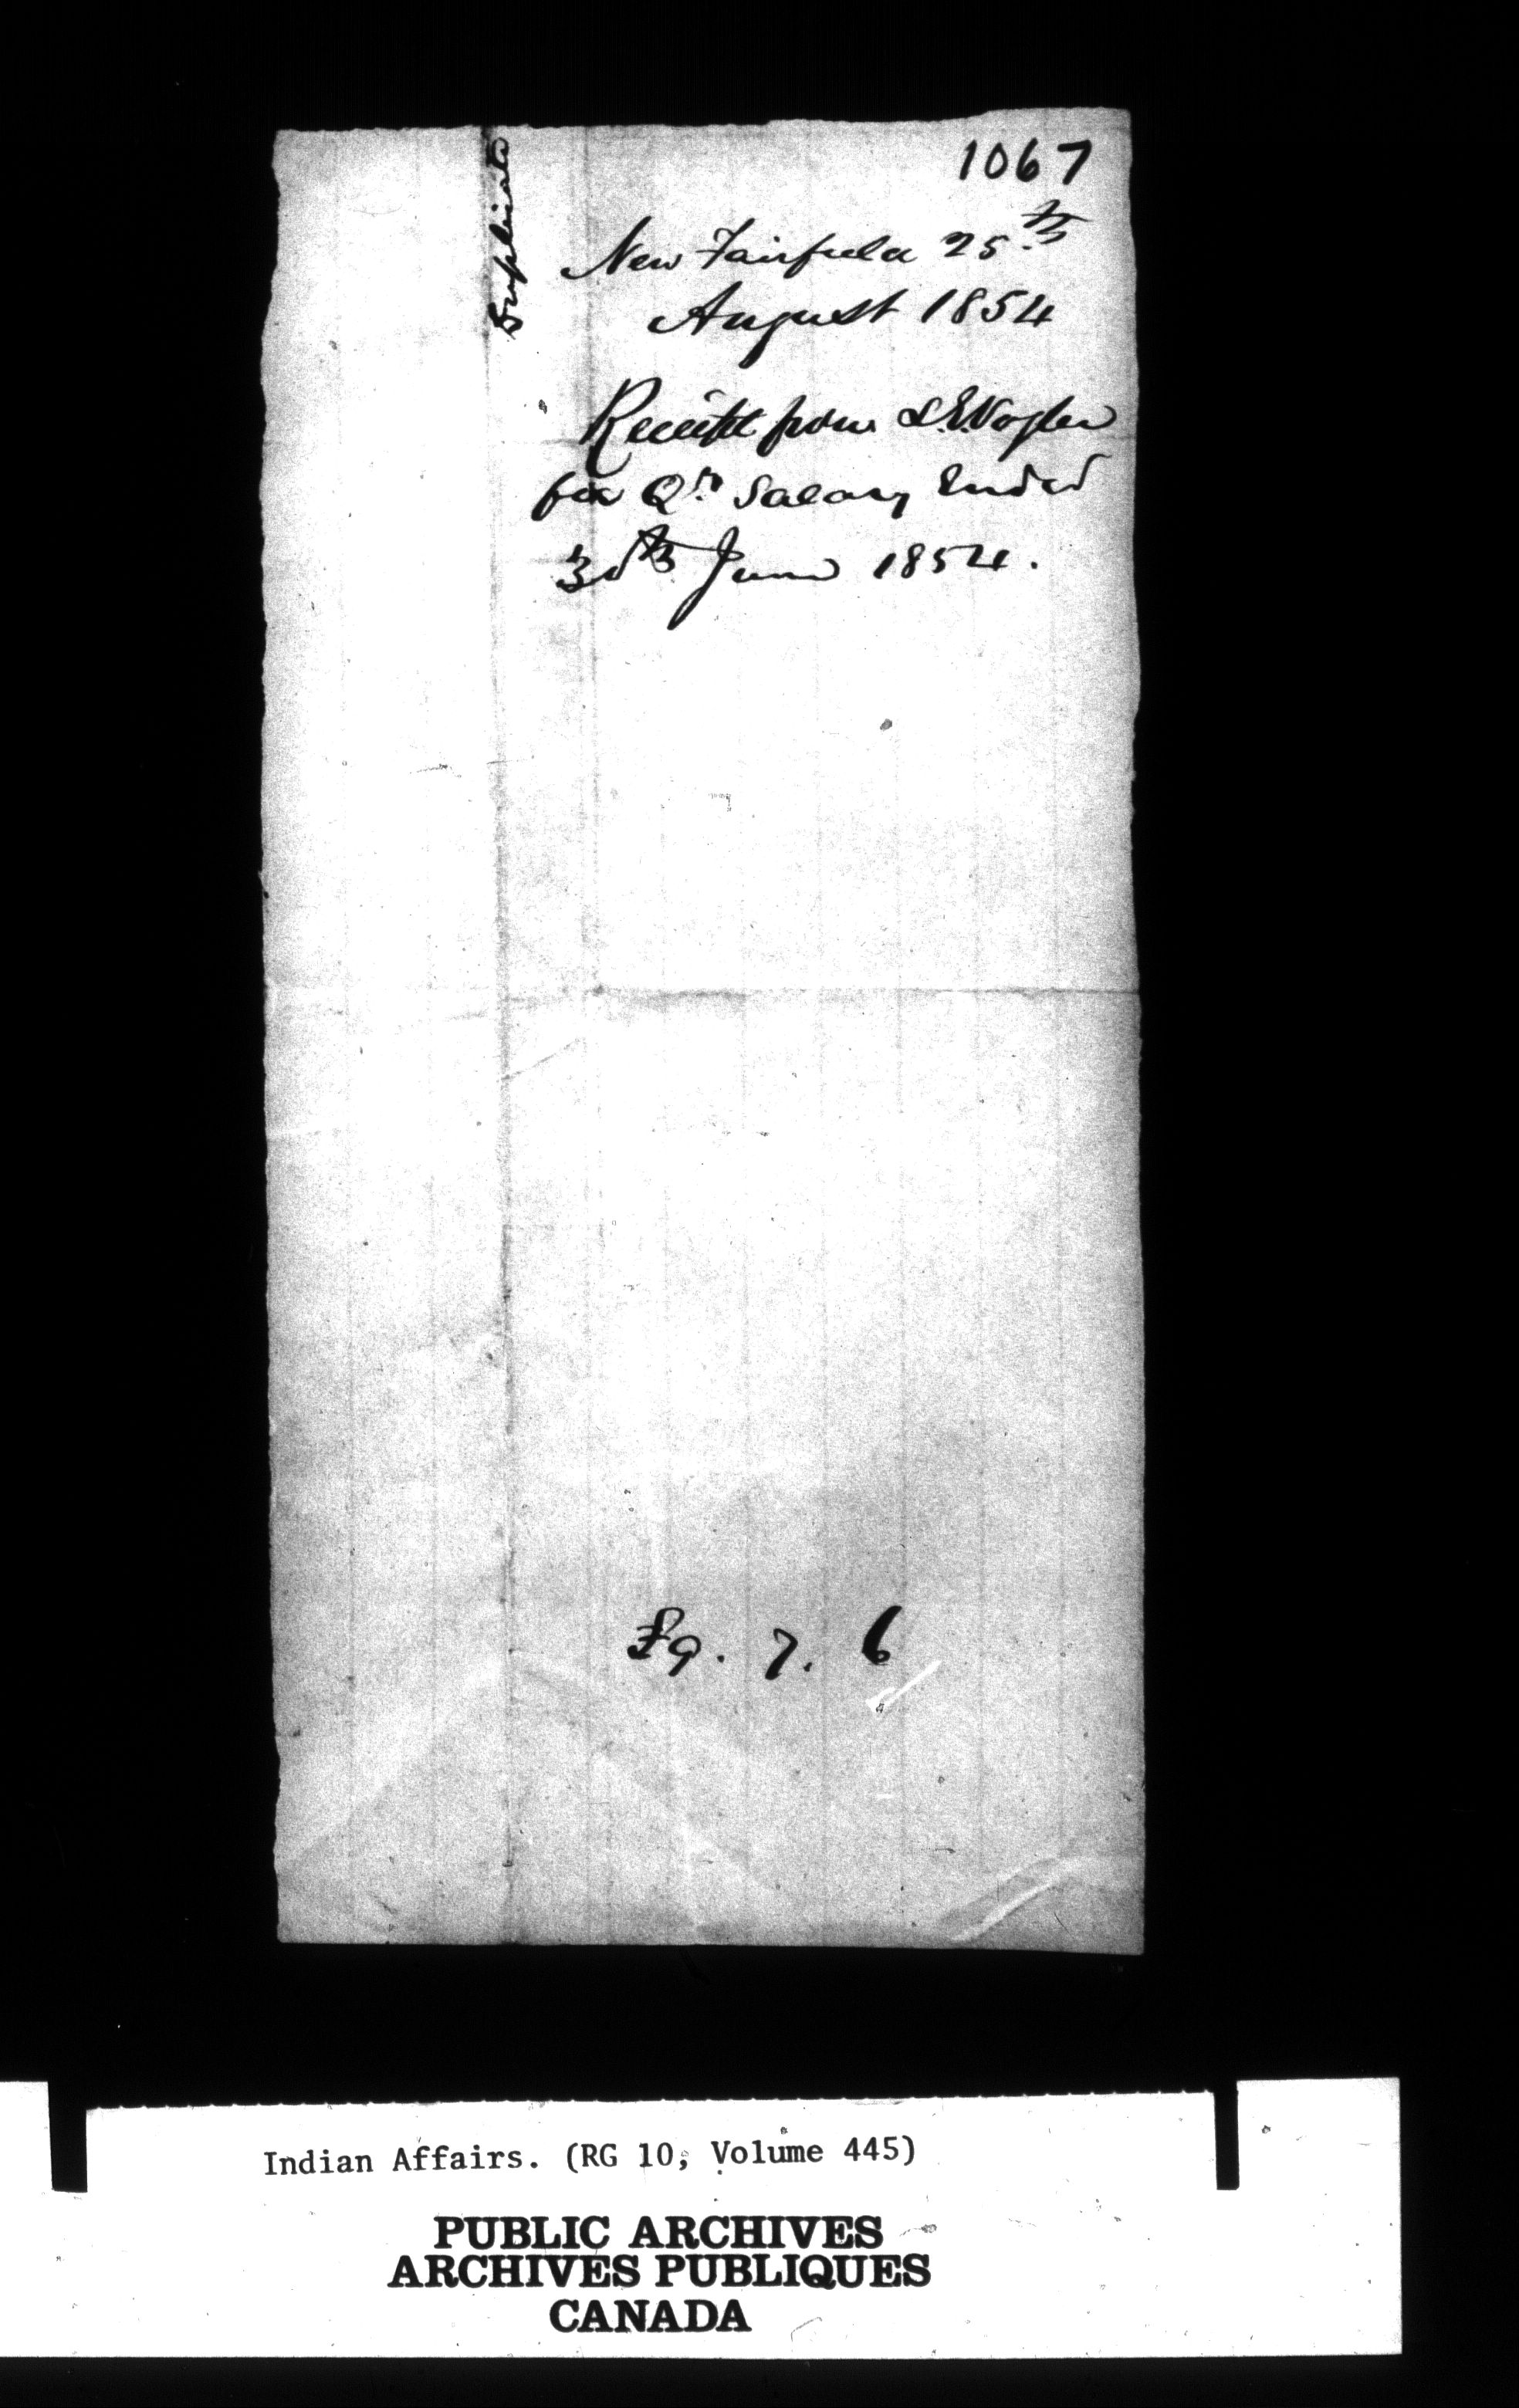 1067
Duplicate
New Fairfield 25th
August 1854
Receipt from L.E. Vogler
for Qr. Salary Ended
30th June 1854.
£9. 7. 6
Indian Affairs. (RG 10, Volume 445)
PUBLIC ARCHIVES
ARCHIVES PUBLIQUES
CANADA